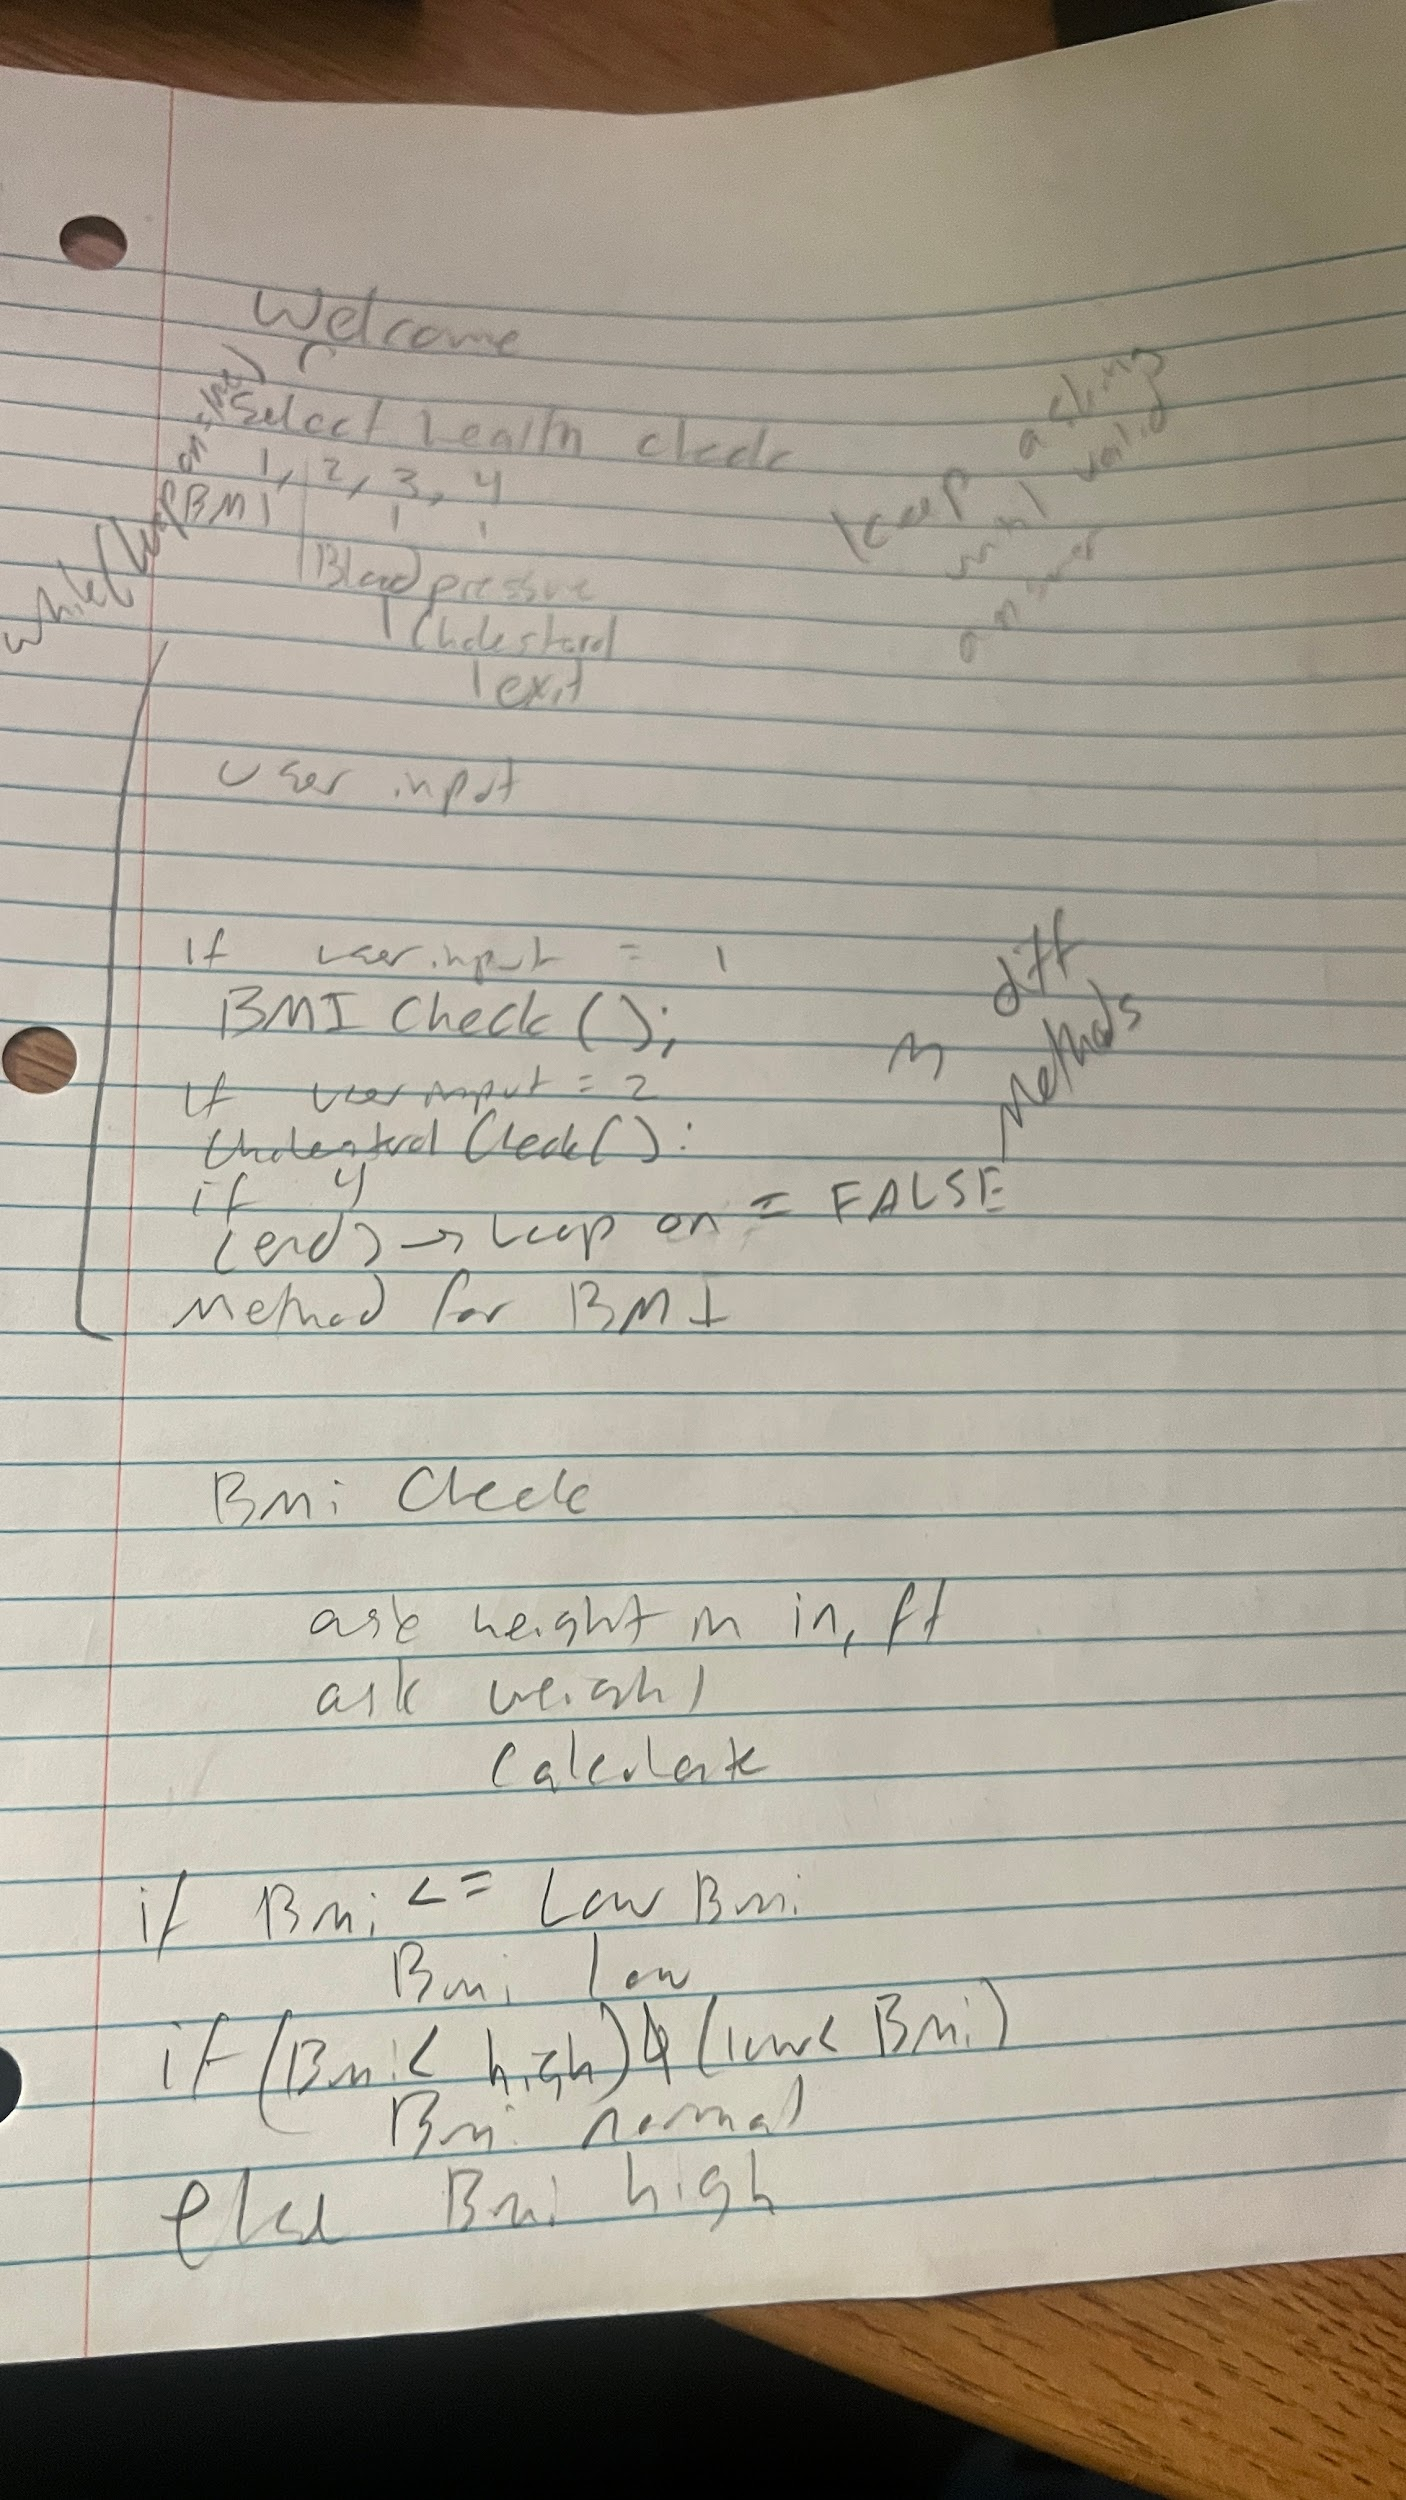 Welcome
Select health check
1, 2, 3, 4
BMI
Blood pressure
Cholestorol
exit
while(loop on = true)
keep asking
until valid
answer
User input
if userinput = 1
BMI Check();
if userinput = 2
Cholestrol Check():
if 4
(end) → loop on = FALSE
3 diff
Methods
Method for BMI
Bmi Check
ask height in in, ft
ask weight
Calculate
if Bmi <= Low Bmi
Bmi low
if (Bmi < high) & (low < Bmi)
Bmi normal
else Bmi high